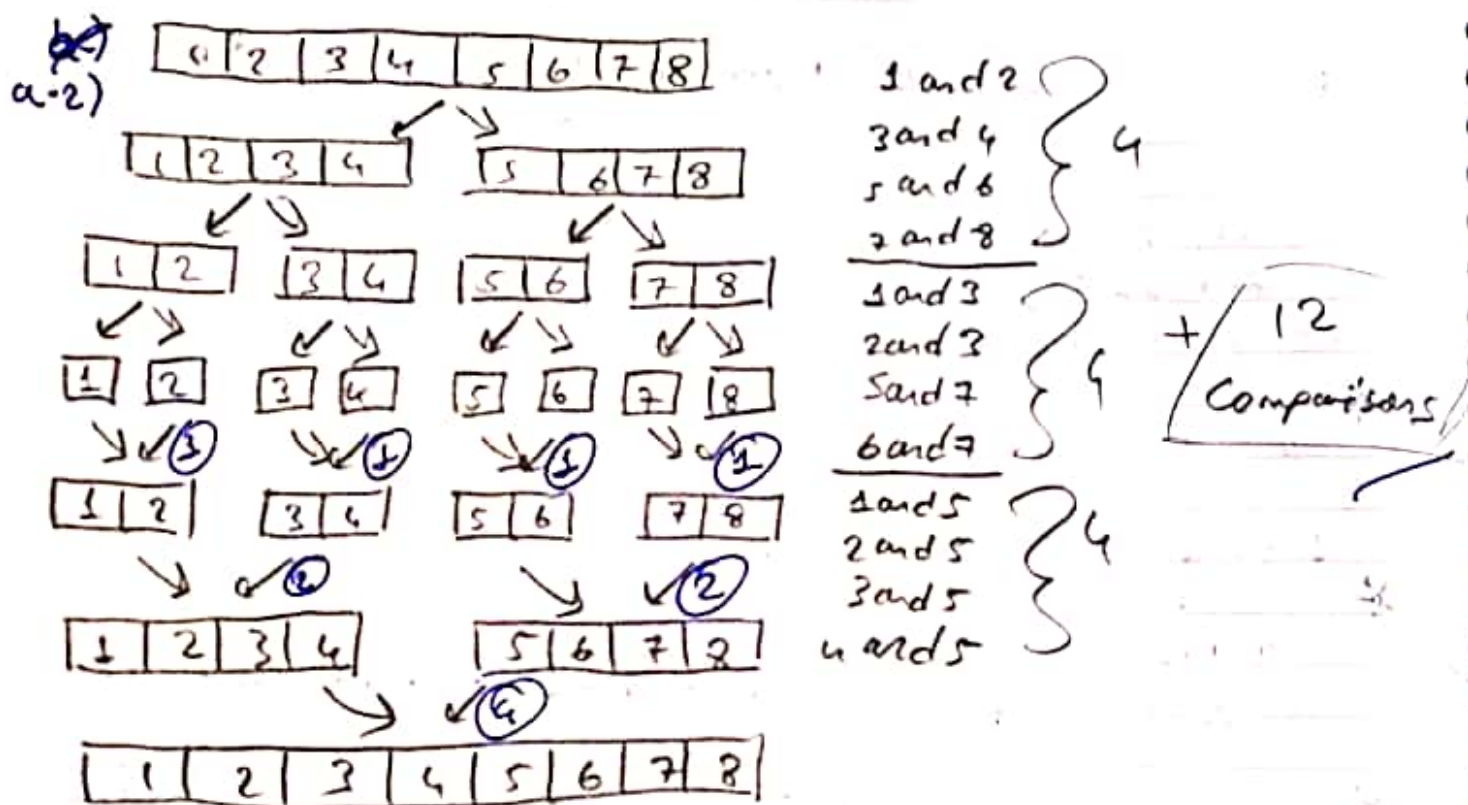 a-2)
1 2 3 4 5 6 7 8
1 2 3 4 5 6 7 8
1 2 3 4 5 6 7 8
1 2 3 4 5 6 7 8
1 1 1 1
1 2 3 4 5 6 7 8
2 2
1 2 3 4 5 6 7 8
4
1 2 3 4 5 6 7 8
1 and 2
3 and 4
5 and 6
7 and 8
4
1 and 3
2 and 3
5 and 7
6 and 7
4
1 and 5
2 and 5
3 and 5
4 and 5
4
+ 12
Comparisons